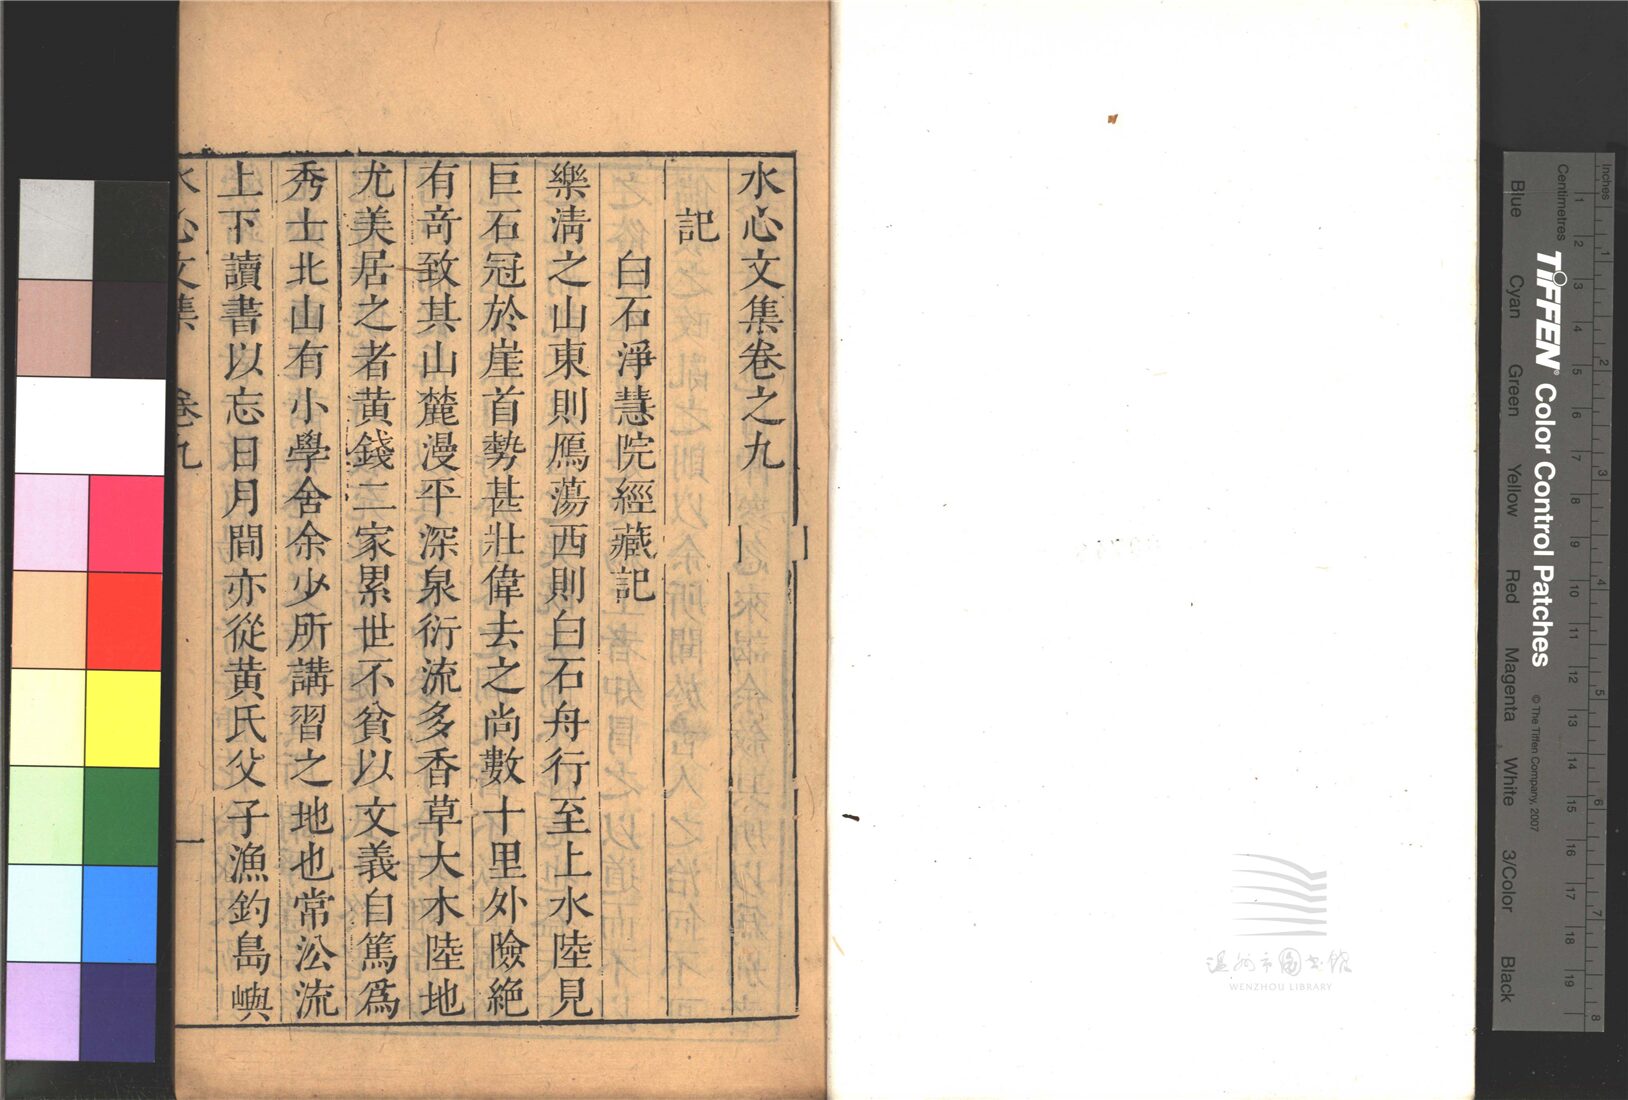 水心文集卷之九
記
白石淨慧院經藏記
樂淸之山東則鴈蕩西則白石舟行至上水陸見
巨石冠於崖首勢甚壯偉去之尚數十里外險絶
有竒致其山麓漫平深泉衍流多香草大木陸地
尤美居之者黄錢二家累世不貧以文義自篤爲
秀士北山有小學舍余少所講習之地也常沿流
上下讀書以忘日月間亦從黄氏父子漁釣島嶼
水心文集 卷九 一
温州市图书馆
WENZHOU LIBRARY
Inches
Centimetres
1 2 3 4 5 6 7 8 9 10 11 12 13 14 15 16 17 18 19
1 2 3 4 5 6 7 8
TIFFEN® Color Control Patches
© The Tiffen Company, 2007
Blue Cyan Green Yellow Red Magenta White 3/Color Black